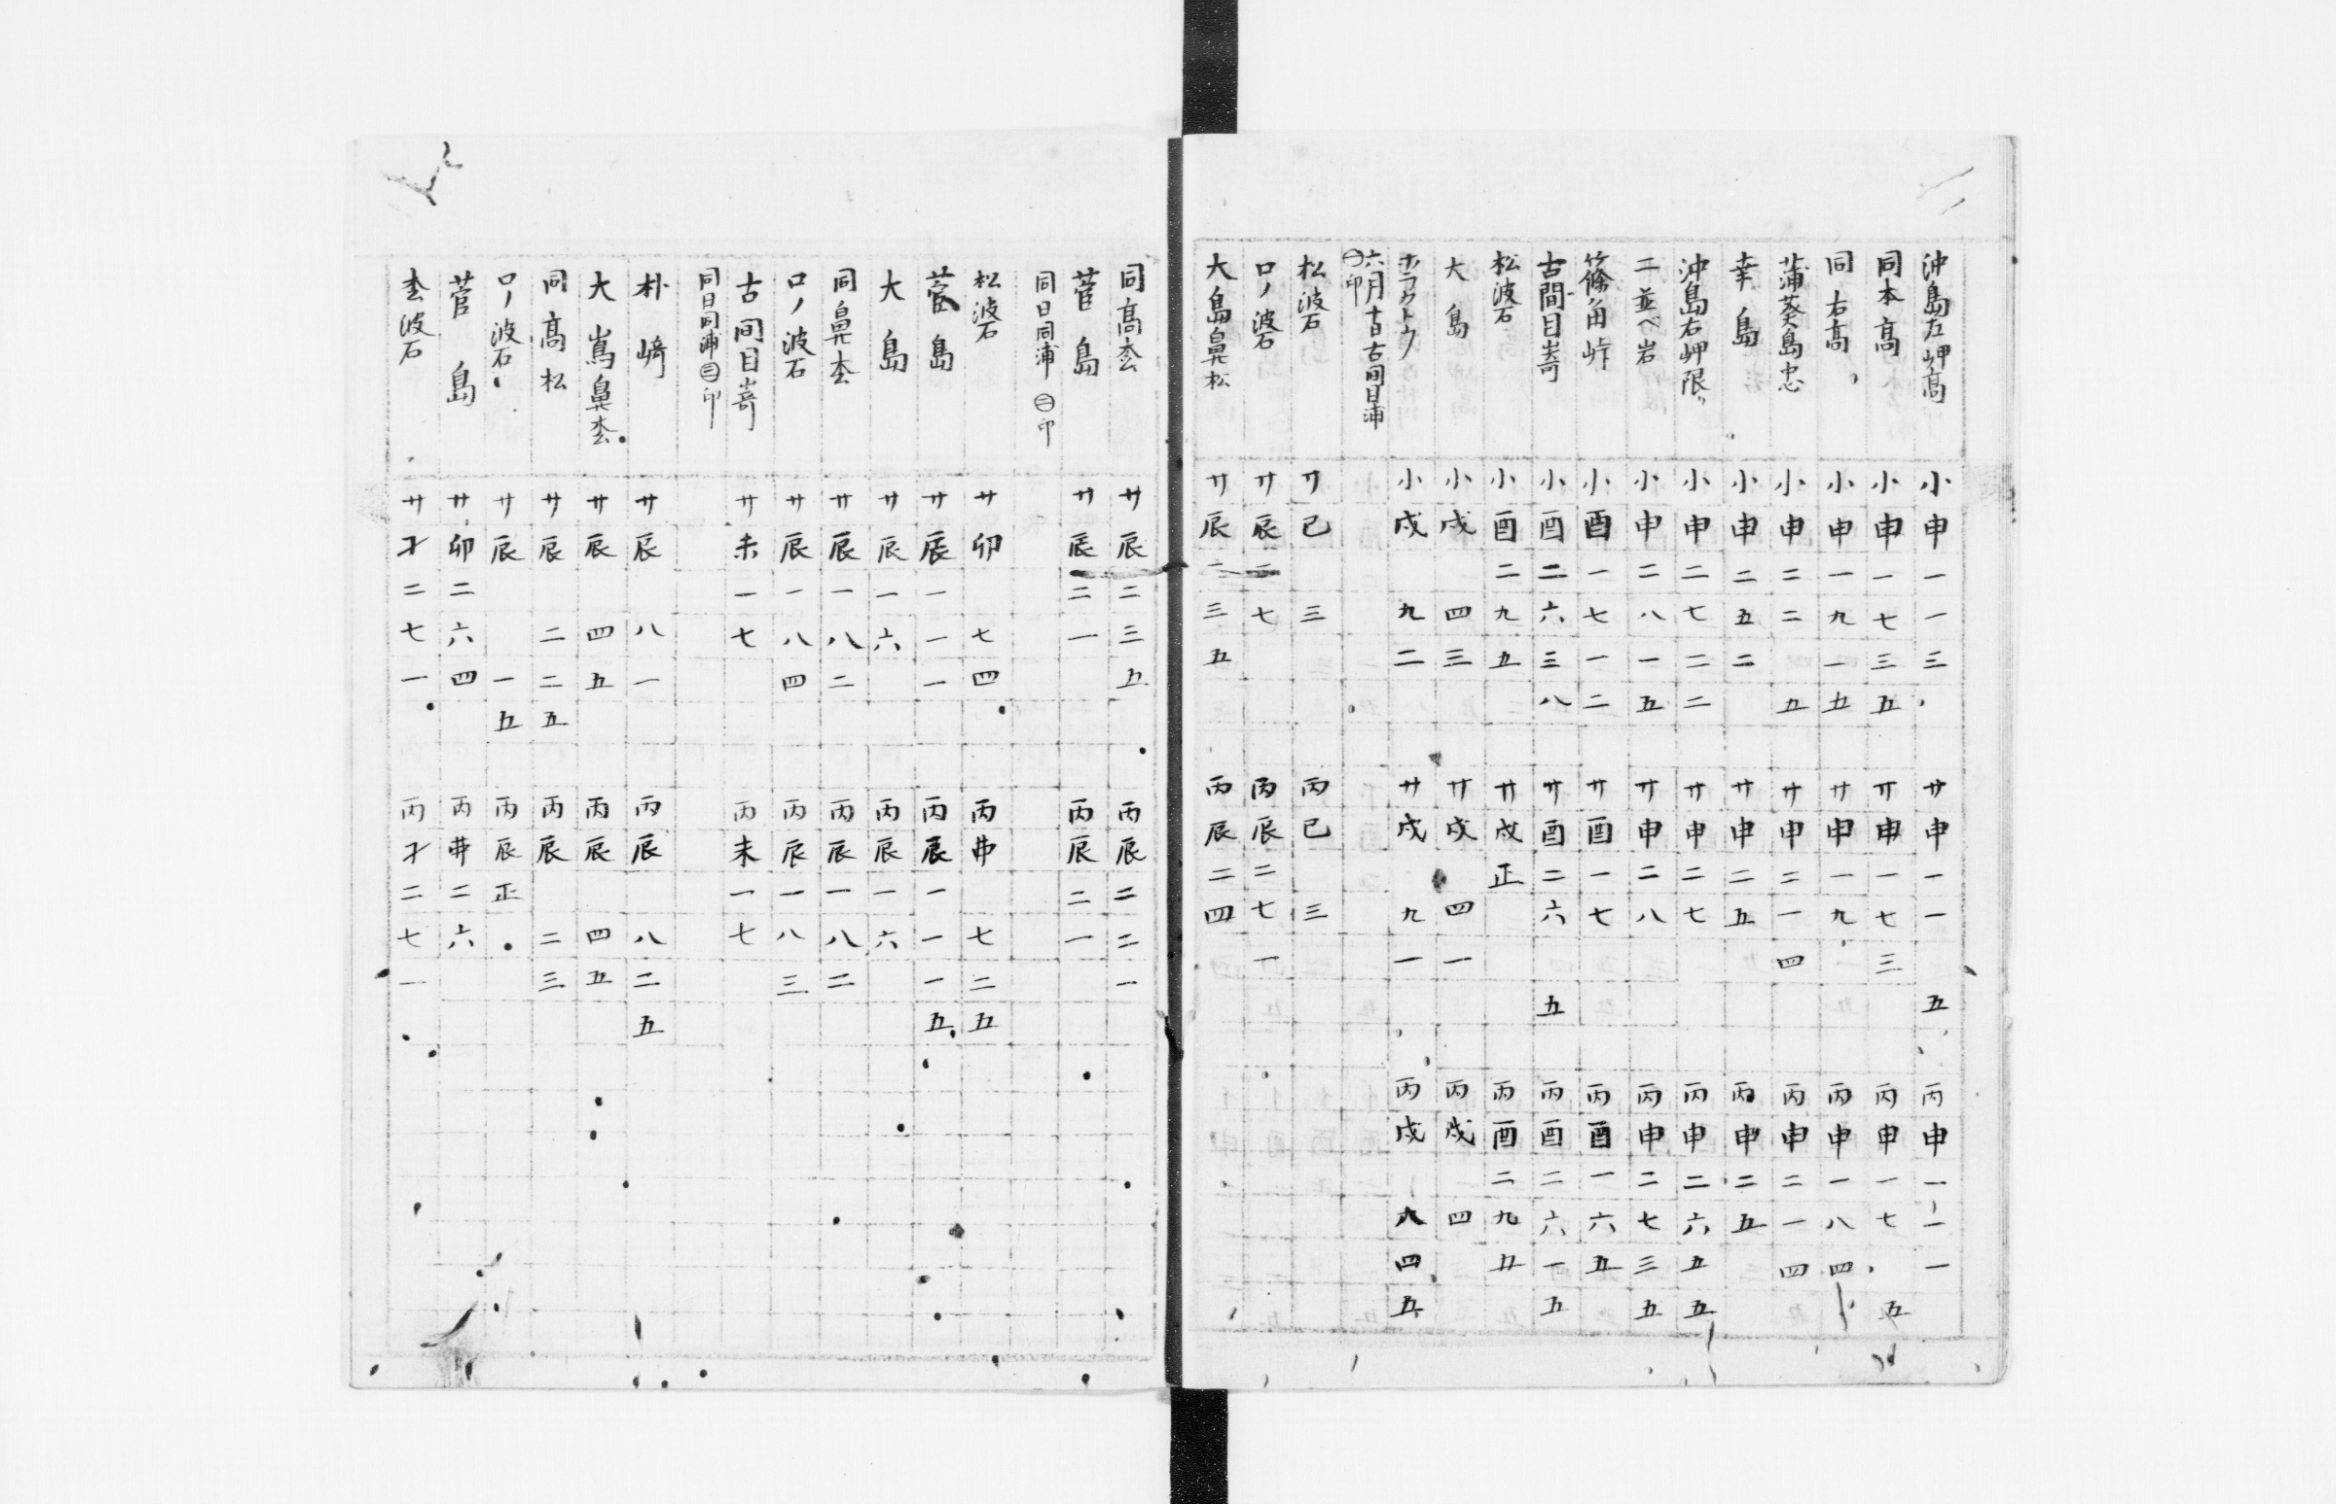 沖島左岬高 小申一一三 廿申一一五 丙申一一一
同本高 小申一七三五 廿申一七三 丙申一七五
同右高 小申一九一五 廿申一九 丙申一八四
蒲葵島忠 小申二二五 廿申二一四 丙申二一四
幸島 小申二五二 廿申二五 丙申二五
沖島右岬限 小申二七二二 廿申二七 丙申二六五五
二並べ岩 小申二八一五 廿申二八 丙申二七三五
篠角峠 小酉一七一二 廿酉一七 丙酉一六五
古間目嵜 小酉二六三八 廿酉二六五 丙酉二六一五
松波石 小酉二九五 廿戌正 丙酉二九五
大島 小戌四三 廿戌四一 丙戌四
ホラクトウ 小戌九二 廿戌九一 丙戌八四五
六月十日古間目浦 ㊀印
松波石 廿巳三 丙巳三
口ノ波石 廿辰二七 丙辰二七一
大島鼻松 廿辰二三五 丙辰二四
同高枩 廿辰二三五 丙辰二二一
菅島 廿辰二一 丙辰二一
同日同浦㊁印
松波石 廿卯七四 丙丱七二五
菅島 廿辰一一一 丙辰一一一五
大島 廿辰一六 丙辰一六
同鼻枩 廿辰一八二 丙辰一八二
口ノ波石 廿辰一八四 丙辰一八三
古间目嵜 廿未一七 丙未一七
同日同浦㊂印
朴﨑 廿辰八一 丙辰八二五
大嶌鼻枩 廿辰四五 丙辰四五
同高松 廿辰二二五 丙辰二三
口ノ波石 廿辰一五 丙辰正
菅島 廿卯二六四 丙丱二六
枩波石 廿才二七一 丙才二七一